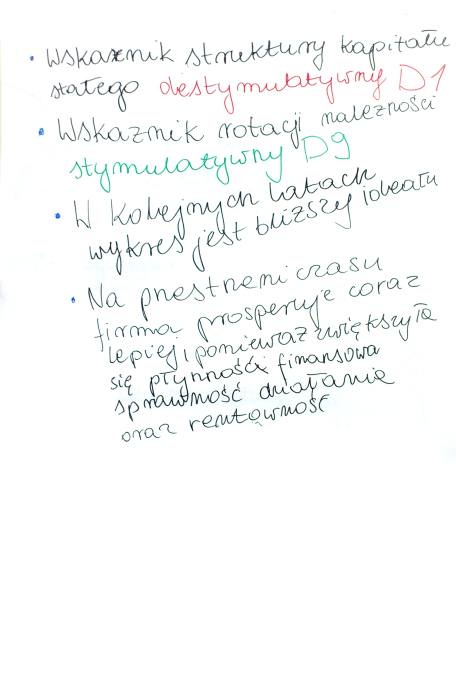 • Wskaznik struktury kapitału
stałego destymulatywny D1
• Wskaznik rotacji należności
stymulatywny D9
• W kolejnych latach
wykres jest bliższy ideału
• Na pnestneni czasu
firma prosperuje coraz
lepiej, poniewaz zwiększyła
się płynność finansowa
sprawność działania
oraz rentowność